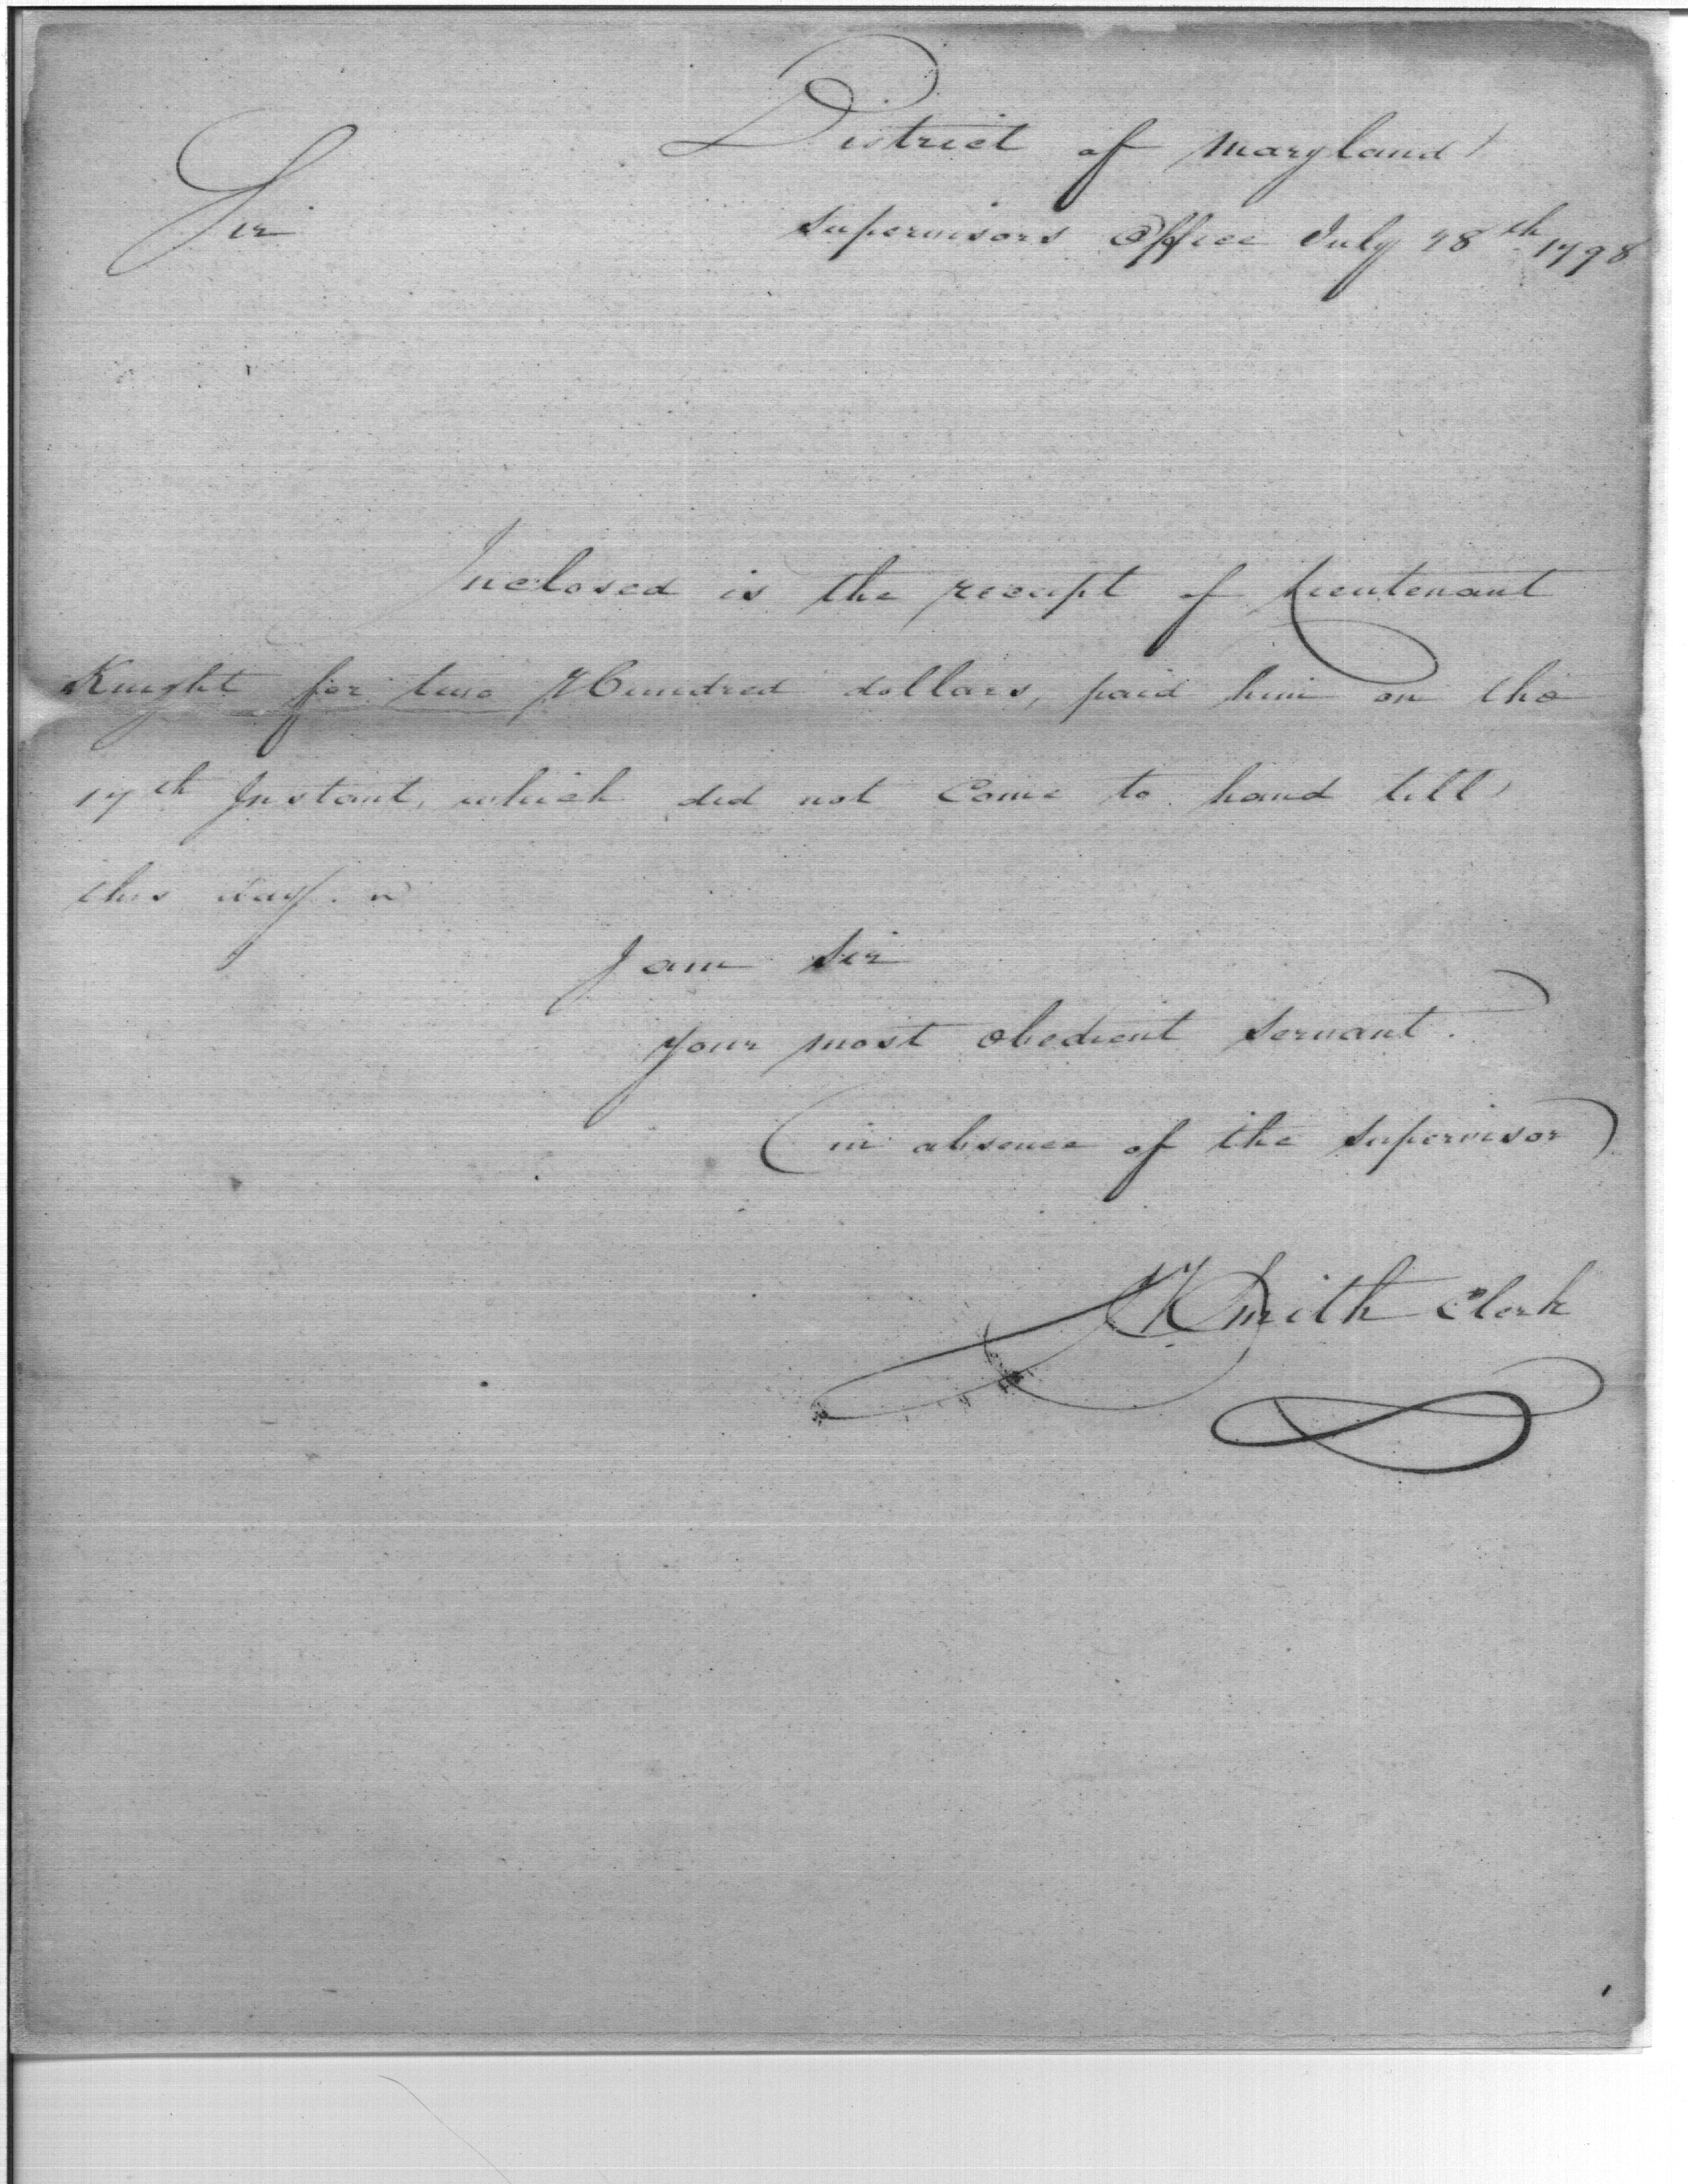 District of Maryland
Sir
supervisors Office July 28th 1798
Inclosed is the receipt of Lieutenant
Knight for two Hundred dollars, paid him on the
17th Instant, which did not Come to hand till
this day.
I am Sir
your most obedient servant.
(in absence of the supervisor)
Smith Clerk